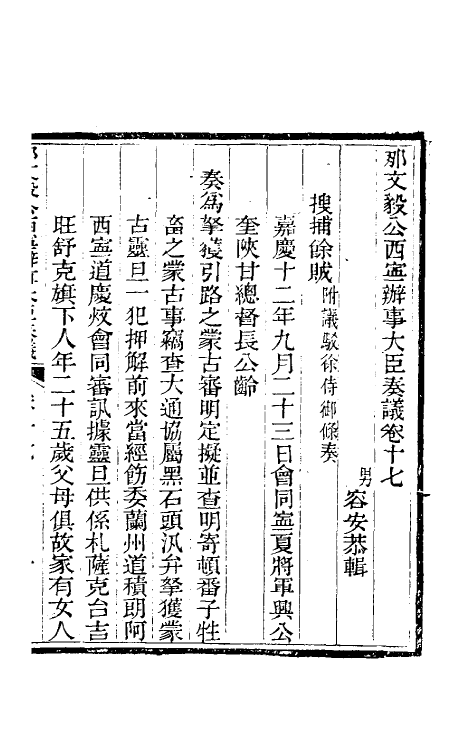 那文毅公西寧辦事大臣奏議卷十七
男容安恭輯
搜捕餘賊附議駁徐侍御條奏
嘉慶十二年九月二十三日會同寧夏將軍興公
奎陝甘總督長公齡
奏爲拏獲引路之蒙古審明定擬並查明寄頓番子牲
畜之蒙古事竊查大通協屬黑石頭汛弁拏獲蒙
古靈旦一犯押解前來當經飭委蘭州道積朗阿
西寧道慶炆會同審訊據靈旦供係札薩克台吉
旺舒克旗下人年二十五歲父母俱故家有女人